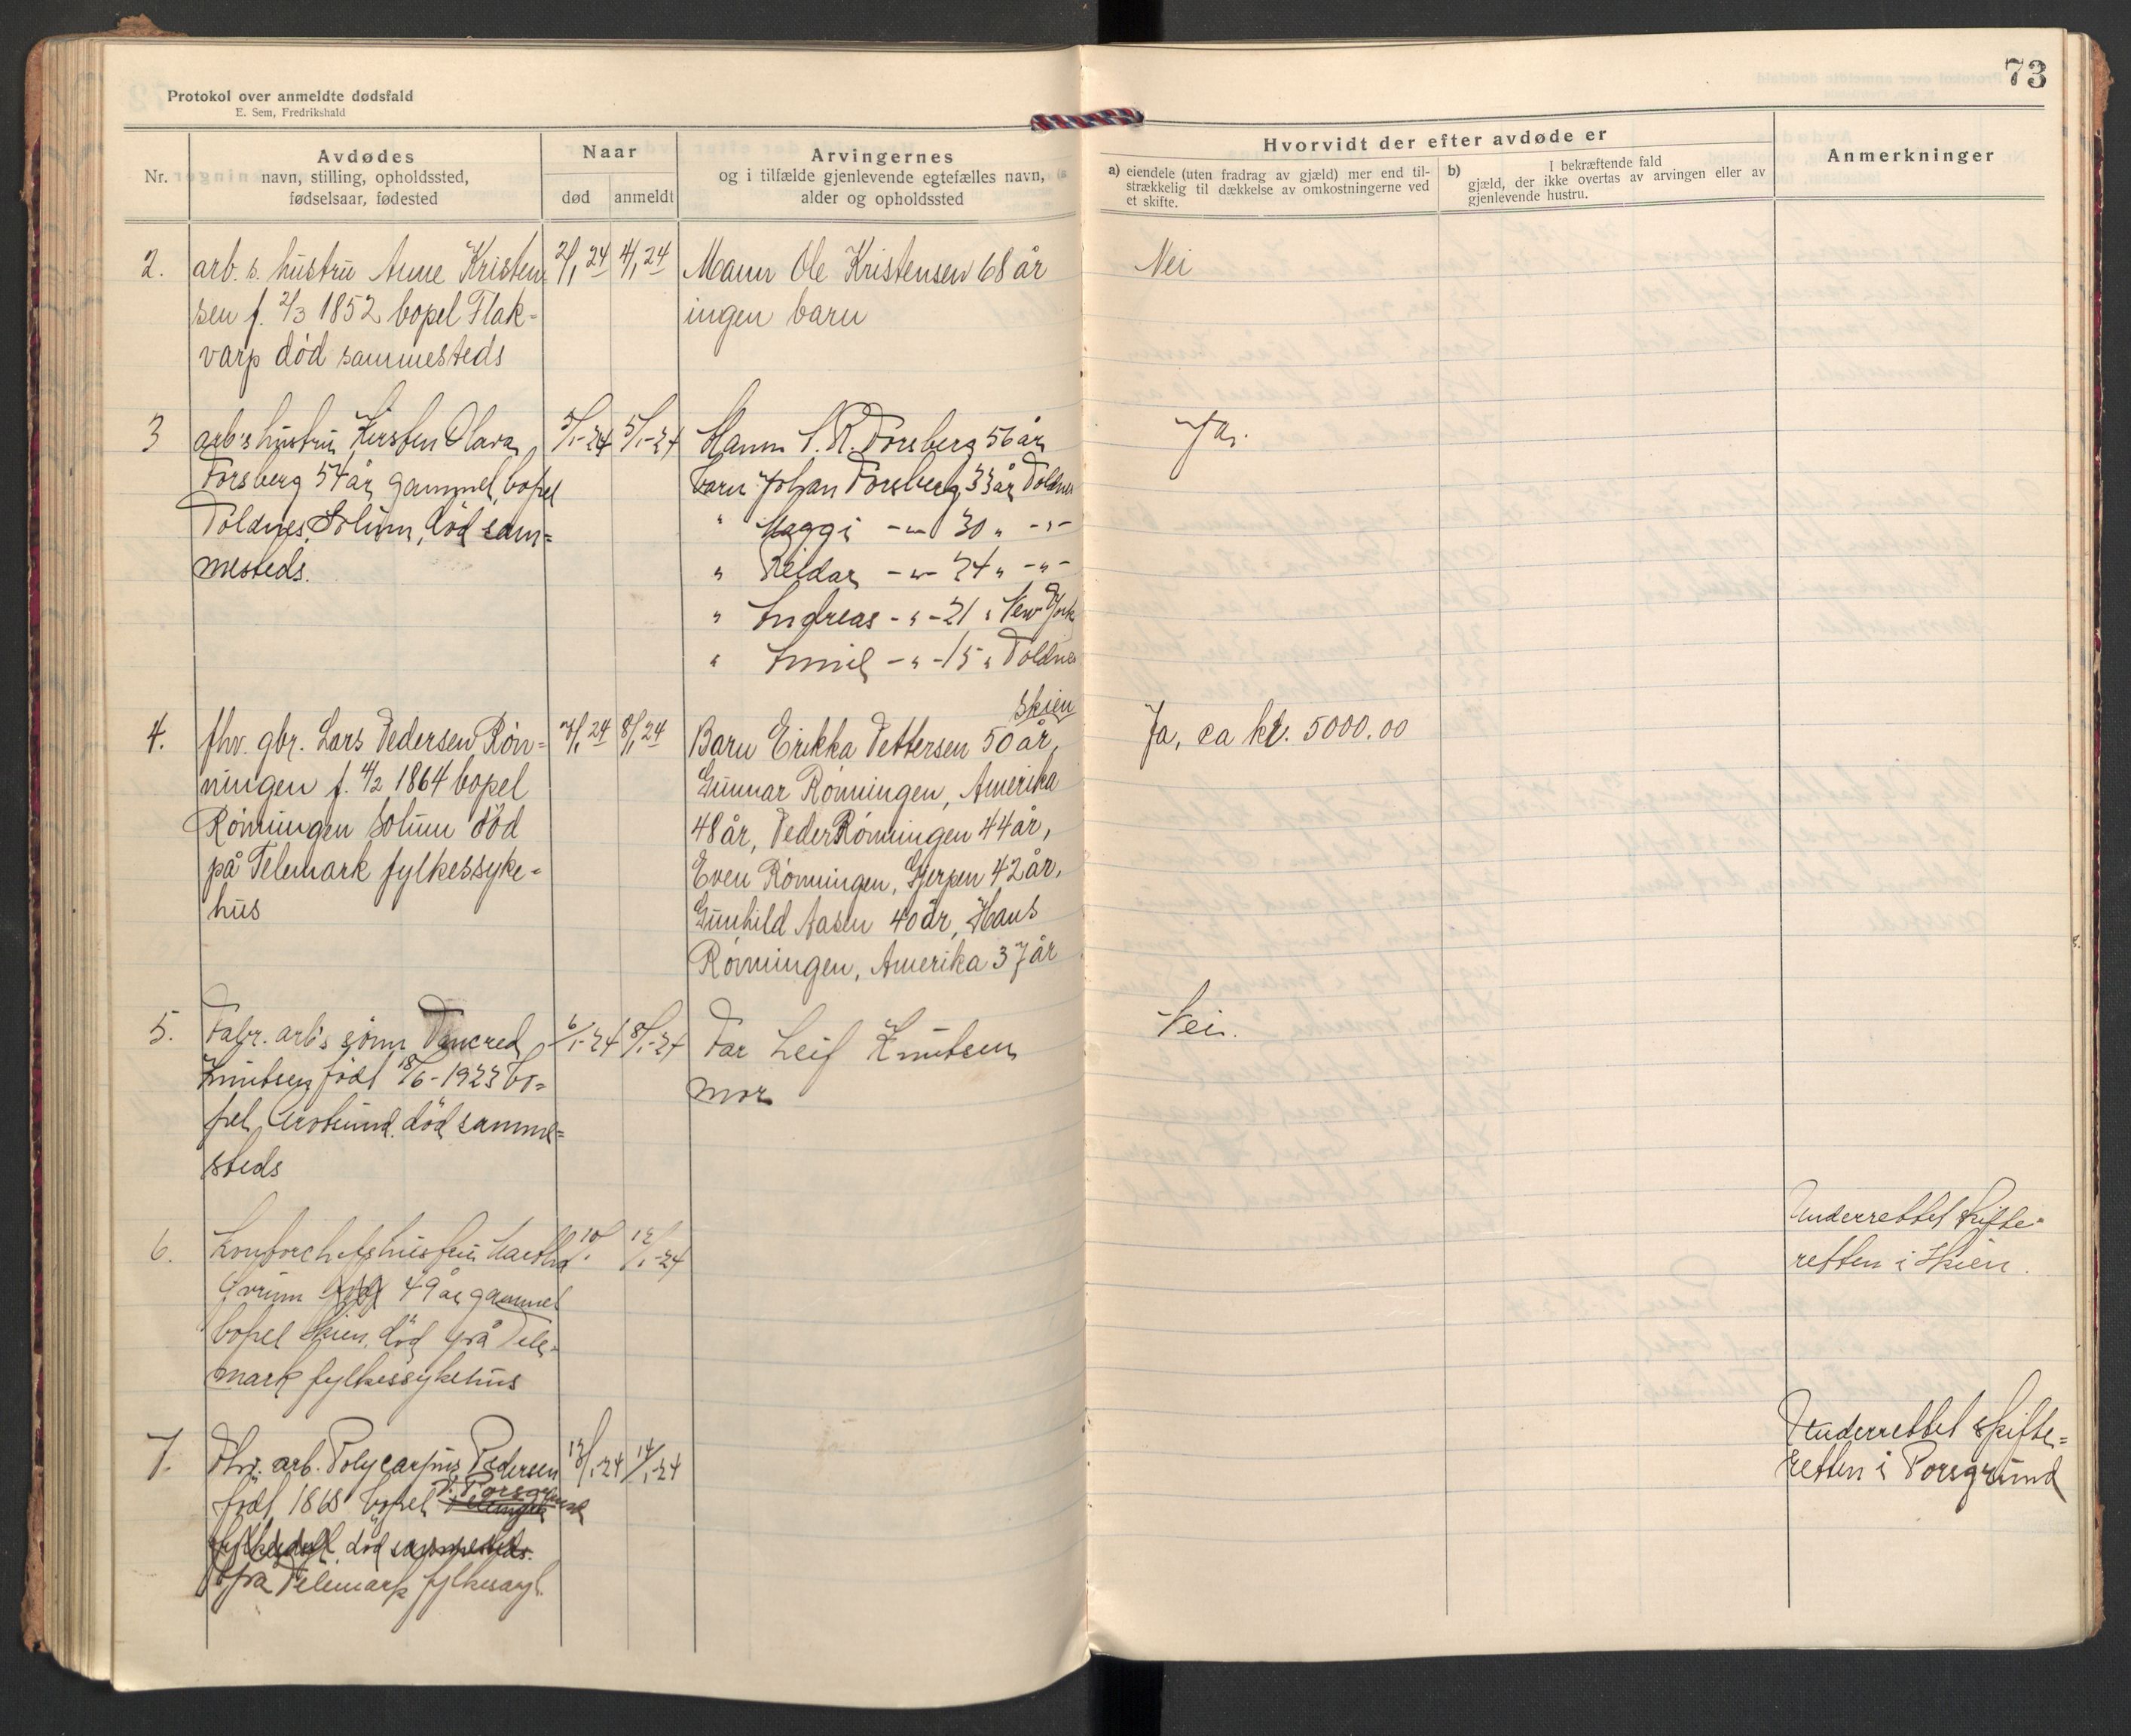 73
Protokol over anmeldte dødsfald
E. Sem, Fredrikshald
Nr.
Avdødes
navn, stilling, opholdssted,
fødselsaar, fødested
Naar
død
anmeldt
Arvingernes
og i tilfælde gjenlevende egtefælles navn,
alder og opholdssted
Hvorvidt der efter avdøde er
a) eiendele (uten fradrag av gjæld) mer end til-
strækkelig til dækkelse av omkostningerne ved
et skifte.
b) I bekræftende fald
gjæld, der ikke overtas av arvingen eller av
gjenlevende hustru.
Anmerkninger
2. arb. s. hustru Anne Kristen= 2/1 24 4/1 24 Mann Ole Kristensen 68 år Nei
sen f. 2/3 1852 bopel Flak- ingen barn
varp død sammesteds
3 arb's hustru Kirsten Olava 3/1-24 5/1-24 Mann R. Forsberg 56 år Ja.
Forsberg 54 år gammel, bopel barn Johan Forsberg 33 år Toldnes
Toldnes, Solum, død sam= " Maggi -"- 30 " -"-
mesteds. " Reidar -"- 24 " -"-
" Andreas -"- 21 " New York
" Emil -"- 15 " Toldnes
Skien
4. fhv. gbr. Lars Pedersen Røn= 7/1 24 8/1 24 Barn Erikka Pettersen 50 år, Ja, ca kr. 5000.00
ningen f. 4/2 1864 bopel Gunnar Rønningen, Amerika
Rønningen Solum død 48 år, Peder Rønningen 44 år,
på Telemark fylkessyke- Even Rønningen, Gjerpen 42 år,
hus Gunhild Aasen 40 år, Hans
Rønningen, Amerika 37 år
5. Fabr. arb's sønn Tancred 6/1-24 8/1-24 Far Leif Knutsen Nei.
Knutsen født 18/6-1923 bo= mor
pel død samme=
steds
6. Kontorchefs hustru Martha 10/1 12/1-24 Underrettet skifte-
49 år gammel retten i Skien.
bopel Skien, død på Tele-
mark fylkessykehus
7. Fhv. arb. Polycarpus Pedersen 13/1-24 14/1-24 Underrettet skifte=
født 1868 bopel V. Porsgrund retten i Porsgrund
død sammesteds.
på Telemark fylkesasyl.